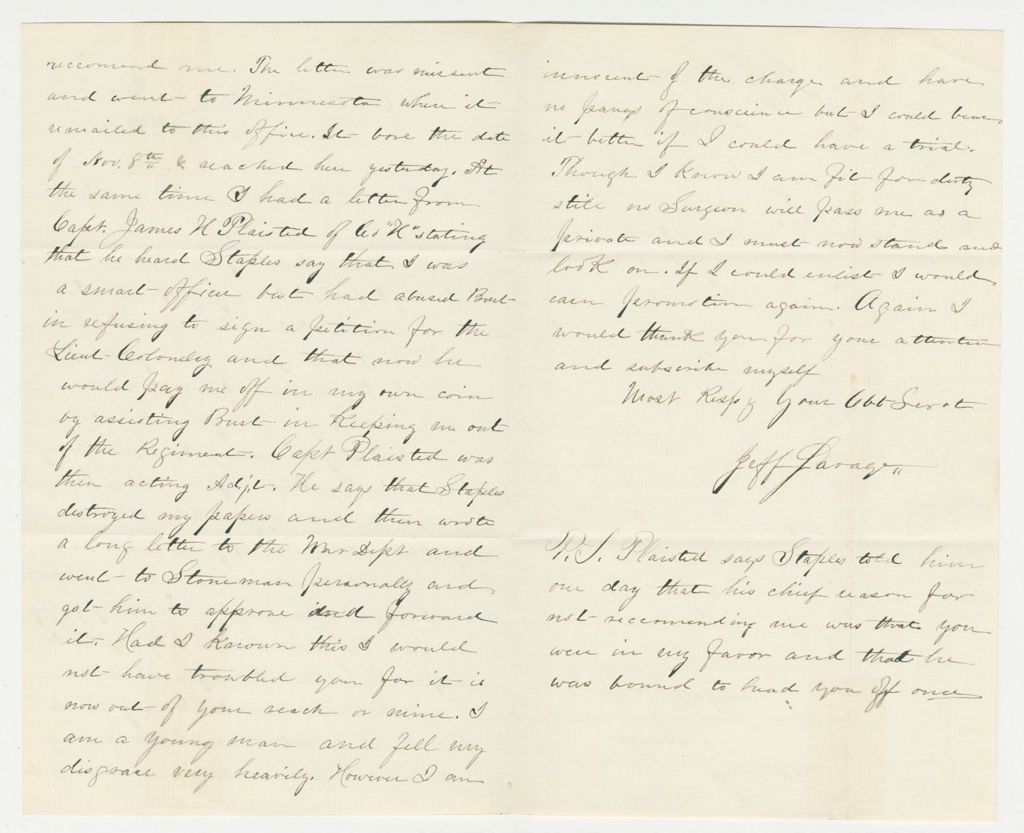 reccomend me. The letter was missent
and went to Minnesota where it
remailed to this office. It bore the date
of Nov. 8th & reached here yesterday. At
the same time I had a letter from
Capt. James H Plaisted of Co "K" stating
that he heard Staples say that I was
a smart officer but had abused Burt
in refusing to sign a petition for the
Lieut Colonelcy and that now he
would pay me off in my own coin
by assisting Burt in Keeping me out
of the Regiment. Capt Plaisted was
then acting Adjt. He says that Staples
destroyed my papers and then wrote
a long letter to the War Dept and
went to Stoneman personally and
got him to approve and forward
it. Had I known this I would
not have troubled you for it is
now out of your reach or mine. I
am a young man and fell my
disgrace very heavily. However I am
innocent of the charge and have
no pangs of conscience but I could bear
it better if I could have a trial.
Though I Know I am fit for duty
still no Surgeon will pass me as a
private and I must now stand and
look on. If I could enlist I would
earn promotion again. Again I
would thank you for your attention
and subscribe myself
Most Respy Your Obt Servt
Jeff Savage
P.S. Plaisted says Staples told him
one day that his chief reason for
not recommending me was that you
were in my favor and that he
was bound to head you off once